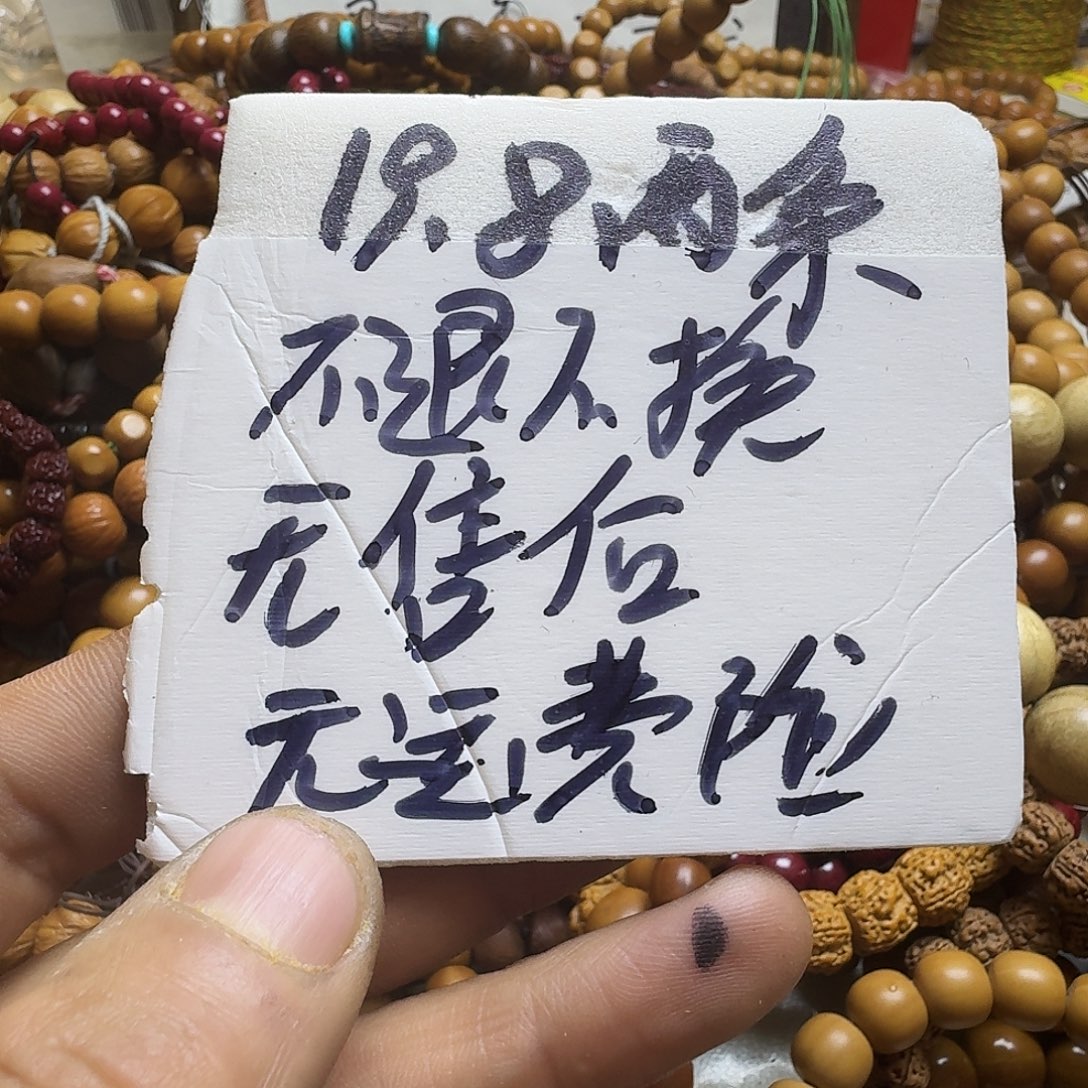 19.8两条
不退不换
无售后
无运费险